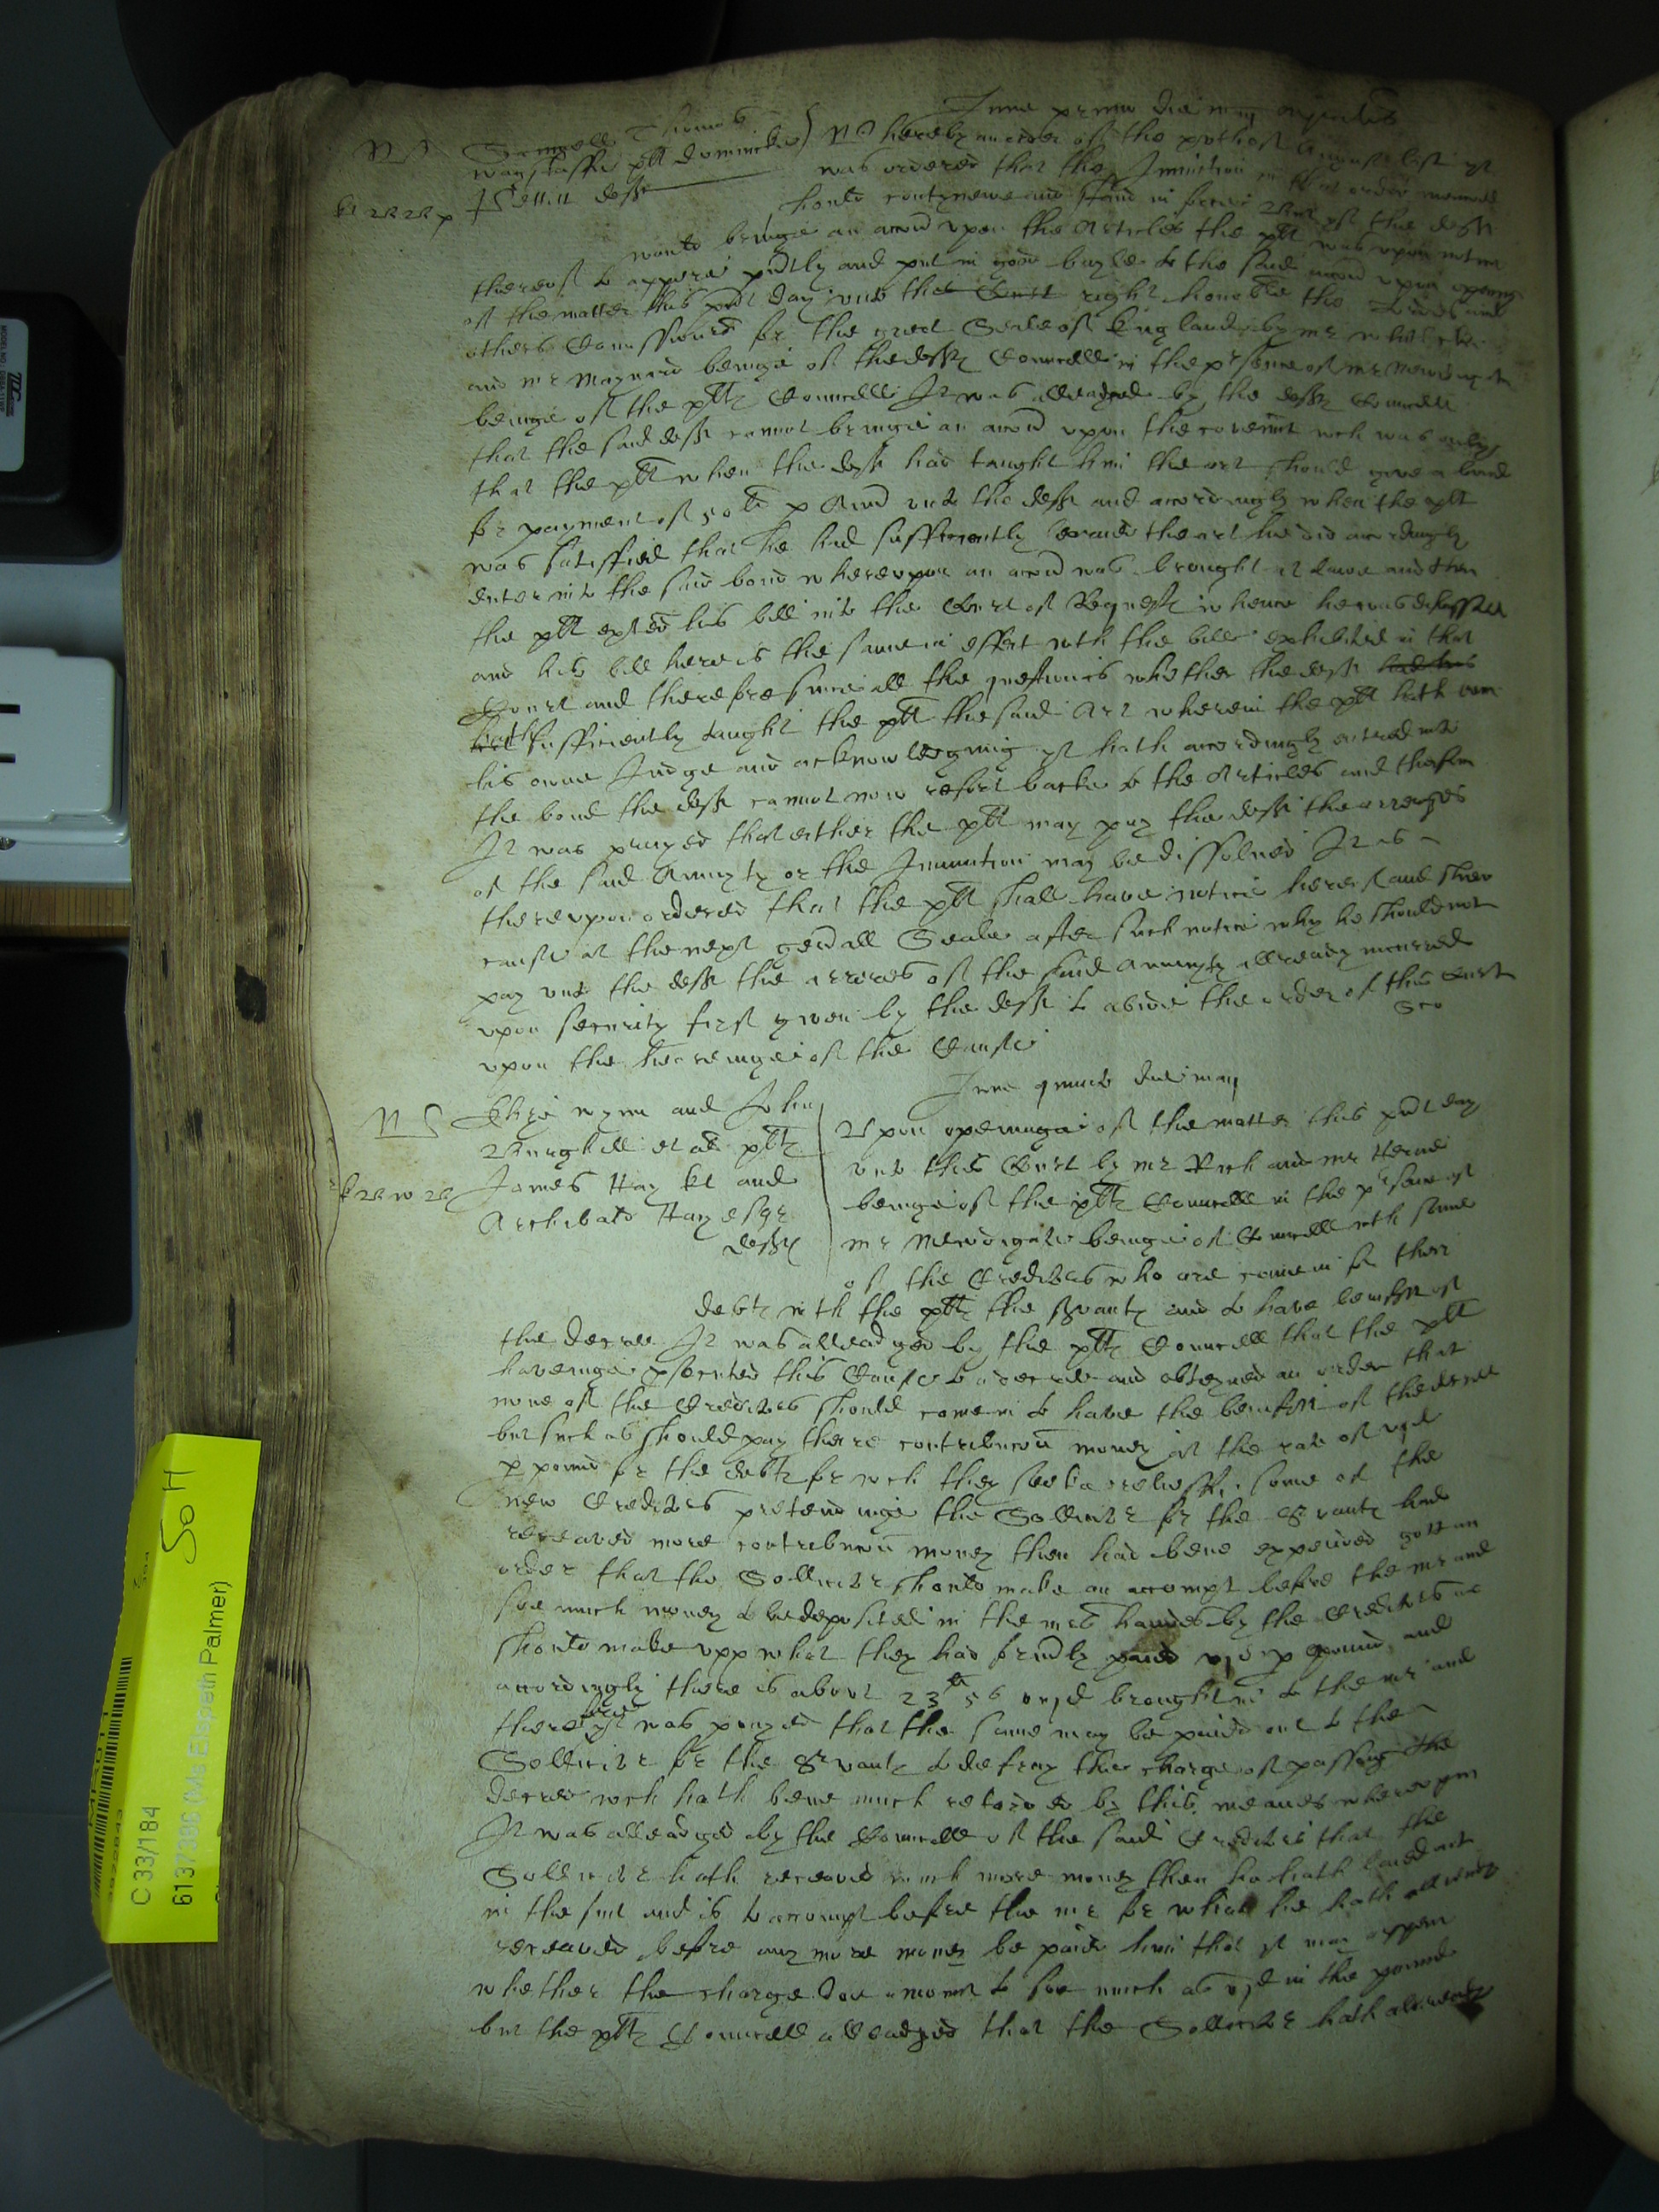 Samuell Thomas
Wagstaffe plt Dominicke
Petitt deft
was ordered that the Iniunction in that order menconed
should contynewe and stand in force
would bringe an accon vpon the Articles the plt was vpon notice
thereof to appeare pntly and put in good bayle to the said accon vpon opening
of the matter this pnt day vnto the Court right honoble the Lords and
others Comissioners for the great Seale of England by mr
and mr Maynard beinge of the defts Councell in the prsence of mr Newdigate
beinge of the plts Councell It was alleadged by the defts Councell
that the said deft cannot bringe an accon vpon the covennt wch was onely
that the plt when the deft had taught him the art should give a bond
for payment of 50li p Annu vnto the deft and accordingly when the plt
was satisfied that he had sufficiently learned the art he did accordingly
enter into the said bond wherevpon an accon was brought at lawe and then
the plt exhted his bill into the Court of Requests whence he was dismissed
and his bill here is the same in effect wth the bill exhibited in that
Court and therefore since all the question is whether the deft had has
hath sufficiently taught the plt the said Art wherein the plt hath ben
his owne Judge and acknowledgeing yt hath accordingly entred into
the bond the deft cannot now resort backe to the Articles and therefore
It was prayed that either the plt may pay the deft the arreares
of the said Annuyty or the Iniunction may be dissolued It is
therevpon ordered that the plt shall have notice hereof and shew
cause at the next genall Seale after such notice why he should not
pay vnto the deft the arreres of the said Annuyty allready incurred
vpon security first given by the deft to abide the order of this Court
vpon the heareinge of the Cause
Jovis quinto die maij
wynn and John
Burghill et al plts
James Hay kt and
Archibald Hay esqr
defts
Vpon openinge of the matter this pnt day
vnto this Court by mr Rich and mr Herne
beinge of the plts Councell in the prsence of
mr Newdigate beinge of Councell wth some
of the Creditors who are come in for their
debts with the plts the servants and to have benefitt of
the decree It was alleadged by the plts Councell that the plt
haveinge psecuted this Cause to a decree and obteyned an order that
none of the Creditors should come in to have the benefitt of the decree
but such as should pay there contribucon money at the rate of vjd
p pound for the debts for wch they seeke reliefe, some of the
new Creditors pretendinge the Sollicitor for the Servants had
receaved more contribucon money then had bene expended gott an
order that the Sollicitor should make an accompt before the mr and
soe much money to be deposited in the mrs hands by the Creditors as
should make vpp what they had formrly paied vjd p pound, and
accordingly there is about 23li brought in to the mr and
therefore yt was prayed that the same may be paied out to the
Sollicitor for the Servants to defray the charge of passing the
decree wch hath bene much retarded by this meanes wherevpon
It was alleadged by the Councell of the said Creditors that the
Sollicitor hath receaved much more money then he hath laied out
in the suit and is to accompt before the mr for what he hath allready
receaved before any more money be paied him that yt may appeare
whether the charge doe amount to soe much as vjd in the pound
but the plts Councell alleadged that the Sollicitor hath allready
C 33/184
6137386 (Ms Elspeth Palmer)
SoH